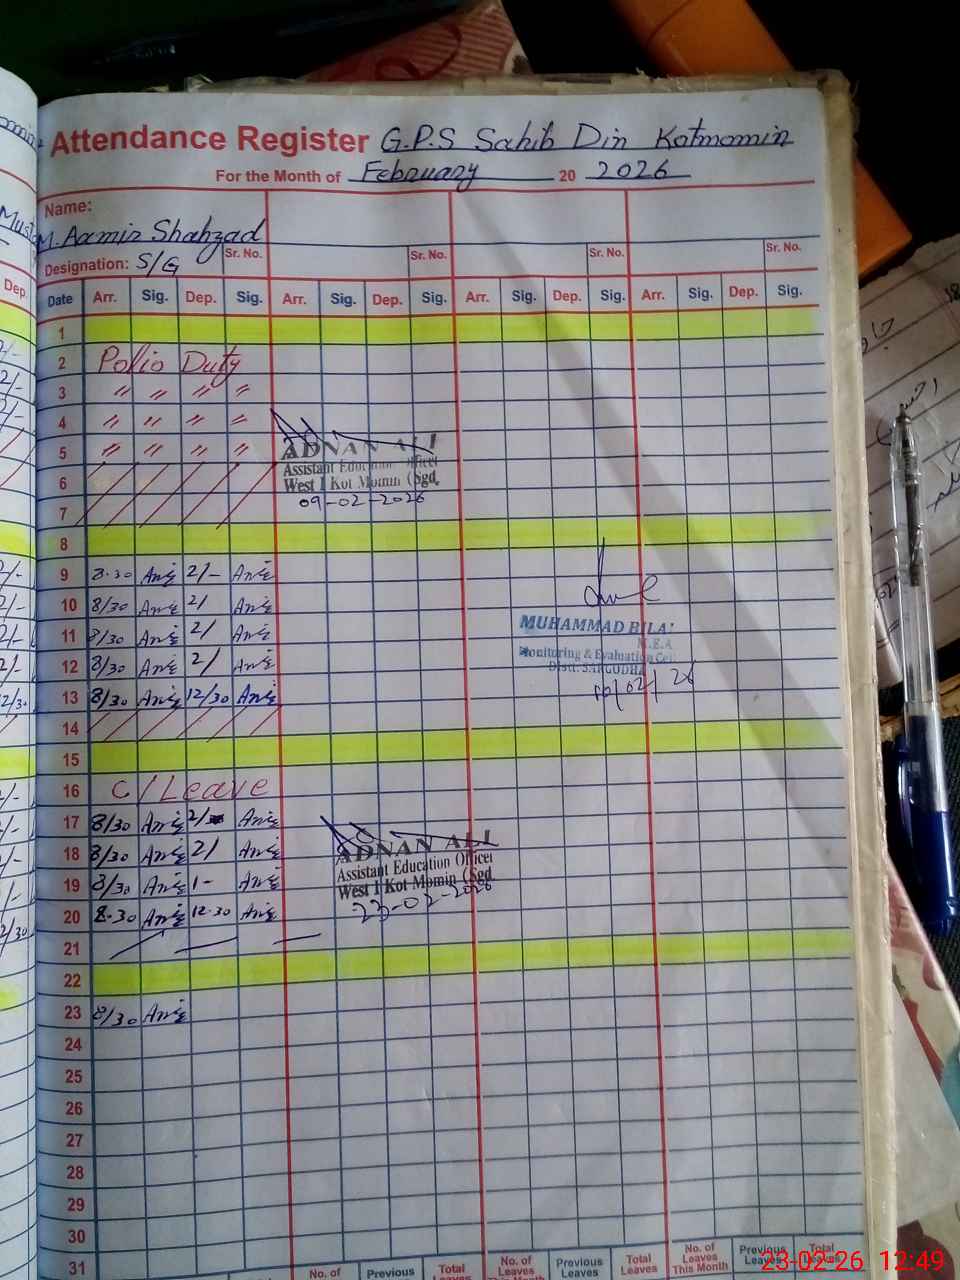 Attendance Register G.P.S Sahib Din Kotmomin
For the Month of February 20 2026
Name:
M. Aamir Shahzad
Designation: S/G Sr. No. Sr. No. Sr. No. Sr. No.
Date Arr. Sig. Dep. Sig. Arr. Sig. Dep. Sig. Arr. Sig. Dep. Sig. Arr. Sig. Dep. Sig.
1
2 Polio Duty
3 〃 〃 〃 〃
4 〃 〃 〃 〃
5 〃 〃 〃 〃
6
7
ADNAN ALI
Assistant Education Officer
West I Kot Momin (Sgd.
09-02-2026
8
9 8.30 2/-
10 8/30 2/
11 8/30 2/
12 8/30 2/
13 8/30 12/30
MUHAMMAD BILA
M.E.A
Monitoring & Evaluation Cel
Distt. SARGODHA
10/02/26
14
15
16 C/Leave
17 8/30 2/
18 8/30 2/
19 8/30 1-
20 8.30 12.30
ADNAN ALI
Assistant Education Officer
West I Kot Momin (Sgd.
23-02-2026
21
22
23 8/30
24
25
26
27
28
29
30
31
No. of Previous Total Leaves No. of Leaves This Month Previous Leaves Total Leaves No. of Leaves This Month Previous Leaves Total Leaves
Dep.
23-02-26 12:49